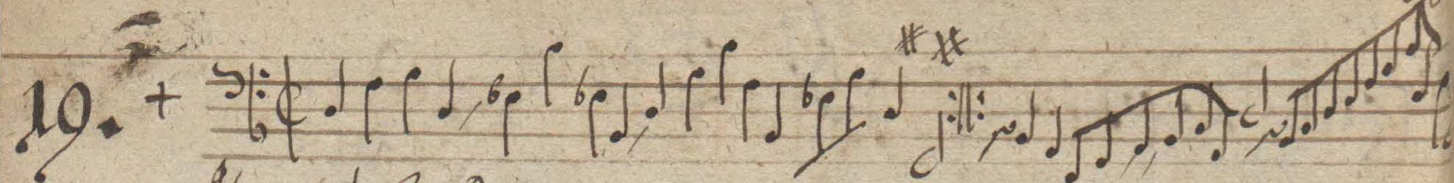 19. +